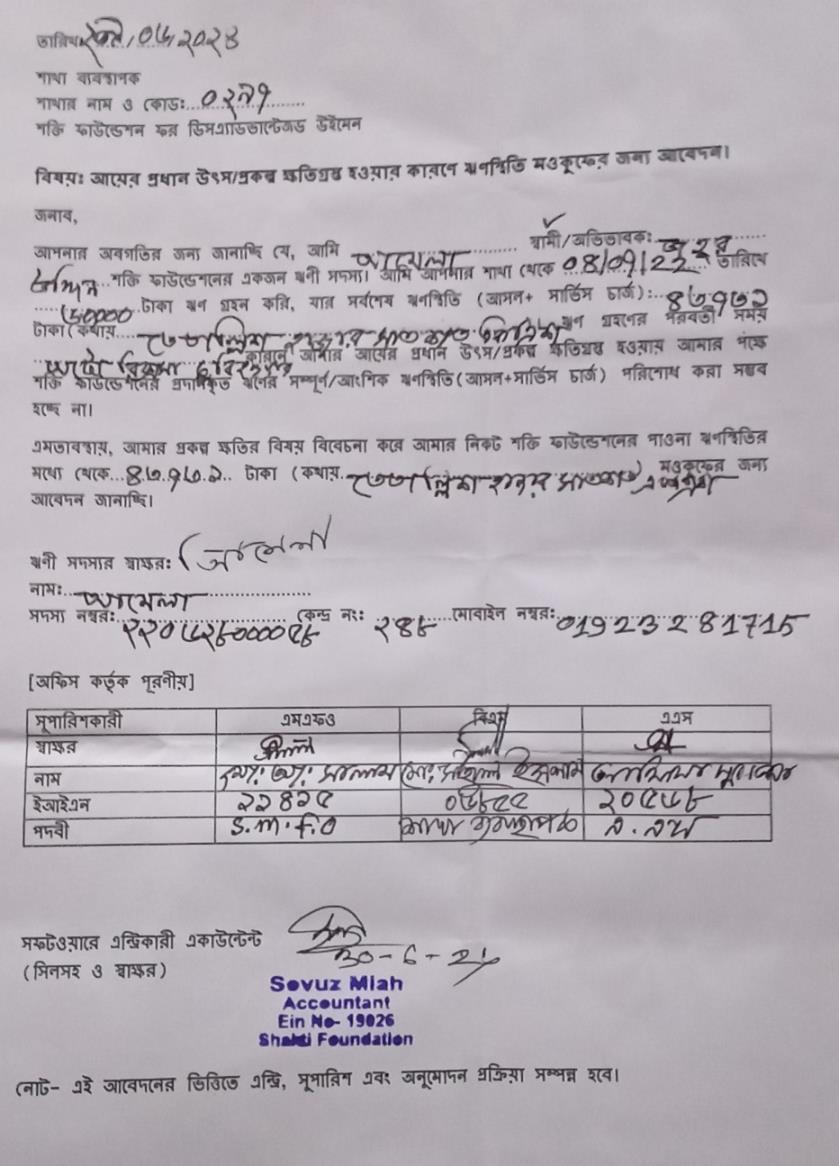 তারিখঃ /০৬/২০২৪
শাখা ব্যবস্থাপক
শাখার নাম ও কোডঃ....০২৯৭..........
শক্তি ফাউন্ডেশন ফর ডিসএ্যাডভান্টেজড উইমেন
বিষয়ঃ আয়ের প্রধান উৎস/প্রকল্প ক্ষতিগ্রস্থ হওয়ার কারণে ঋণস্থিতি মওকুফের জন্য আবেদন।
জনাব,
আপনার অবগতির জন্য জানাচ্ছি যে, আমি ........ স্বামী/অভিভাবক: জহুর
উদ্দিন শক্তি ফাউন্ডেশনের একজন ঋণী সদস্য। আমি আপনার শাখা থেকে তারিখে
টাকা ঋণ গ্রহন করি, যার সর্বশেষ ঋণস্থিতি (আসল+ সার্ভিস চার্জ):..৪৩৭৩১
টাকা (কথায়... তেতাল্লিশ হাজার সাতশত একত্রিশ ঋণ গ্রহনের পরবর্তী সময়
কারনে আমার আয়ের প্রধান উৎস/প্রকল্প ক্ষতিগ্রস্থ হওয়ায় আমার পক্ষে
শক্তি ফাউন্ডেশনের প্রদানকৃত ঋনের সম্পূর্ণ/আংশিক ঋণস্থিতি (আসল+সার্ভিস চার্জ) পরিশোধ করা সম্ভব
হচ্ছে না।
এমতাবস্থায়, আমার প্রকল্প ক্ষতির বিষয় বিবেচনা করে আমার নিকট শক্তি ফাউন্ডেশনের পাওনা ঋণস্থিতির
মধ্যে থেকে...৪৩৭৩১.. টাকা (কথায়. তেতাল্লিশ হাজার সাতশত একত্রিশ) মওকুফের জন্য
আবেদন জানাচ্ছি।
ঋনী সদস্যর স্বাক্ষরঃ
নামঃ..........................
সদস্য নম্বরঃ কেন্দ্র নংঃ ২৪৮ ...মোবাইল নম্বরঃ 01923281715
[অফিস কর্তৃক পূরনীয়]
সুপারিশকারী এমএফও বিএম এএম
স্বাক্ষর
নাম
ইআইএন ২২৪২৫ ২০৫৬৮
পদবী S.m.f.o শাখা ব্যবস্থাপক এ. এম
সফটওয়ারে এন্ট্রিকারী একাউন্টেন্ট
30-6-24
(সিলসহ ও স্বাক্ষর)
Sovuz Miah
Accountant
Ein No- 19026
Shakti Foundation
নোট- এই আবেদনের ভিত্তিতে এন্ট্রি, সুপারিশ এবং অনুমোদন প্রক্রিয়া সম্পন্ন হবে।